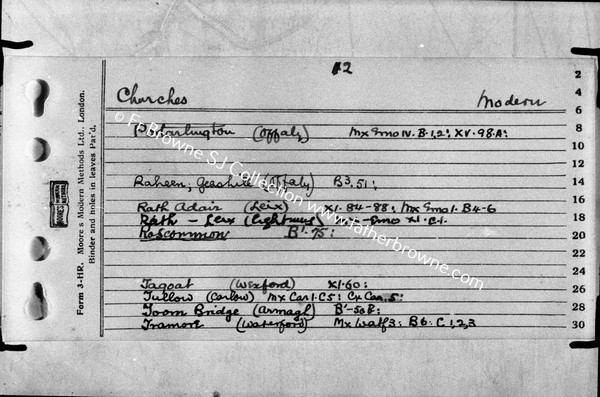 12
Churches Modern
Portarlington (Offaly) Mx Smo IV. B. 1, 2; XV. 98. A:
Raheen, Geashill (Offaly) B3. 51;
Rath Adair (Leix) XI. 84-88; Mx Smo 1. B4-6
Rath - Leix XI. C1.
Roscommon B'. 75;
Tagoat (Wexford) XI. 60:
Tullow (Carlow) Mx Car 1. C5: Cx Car. 5:
Toom Bridge (Armagh) B'-50B:
Tramore (Waterford) Mx Watf 3: B6: C 1, 2, 3
2
4
6
8
10
12
14
16
18
20
22
24
26
28
30
Form 3-HR. Moore's Modern Methods Ltd., London.
Binder and holes in leaves Pat'd.
© Fr Browne SJ Collection www.fatherbrowne.com